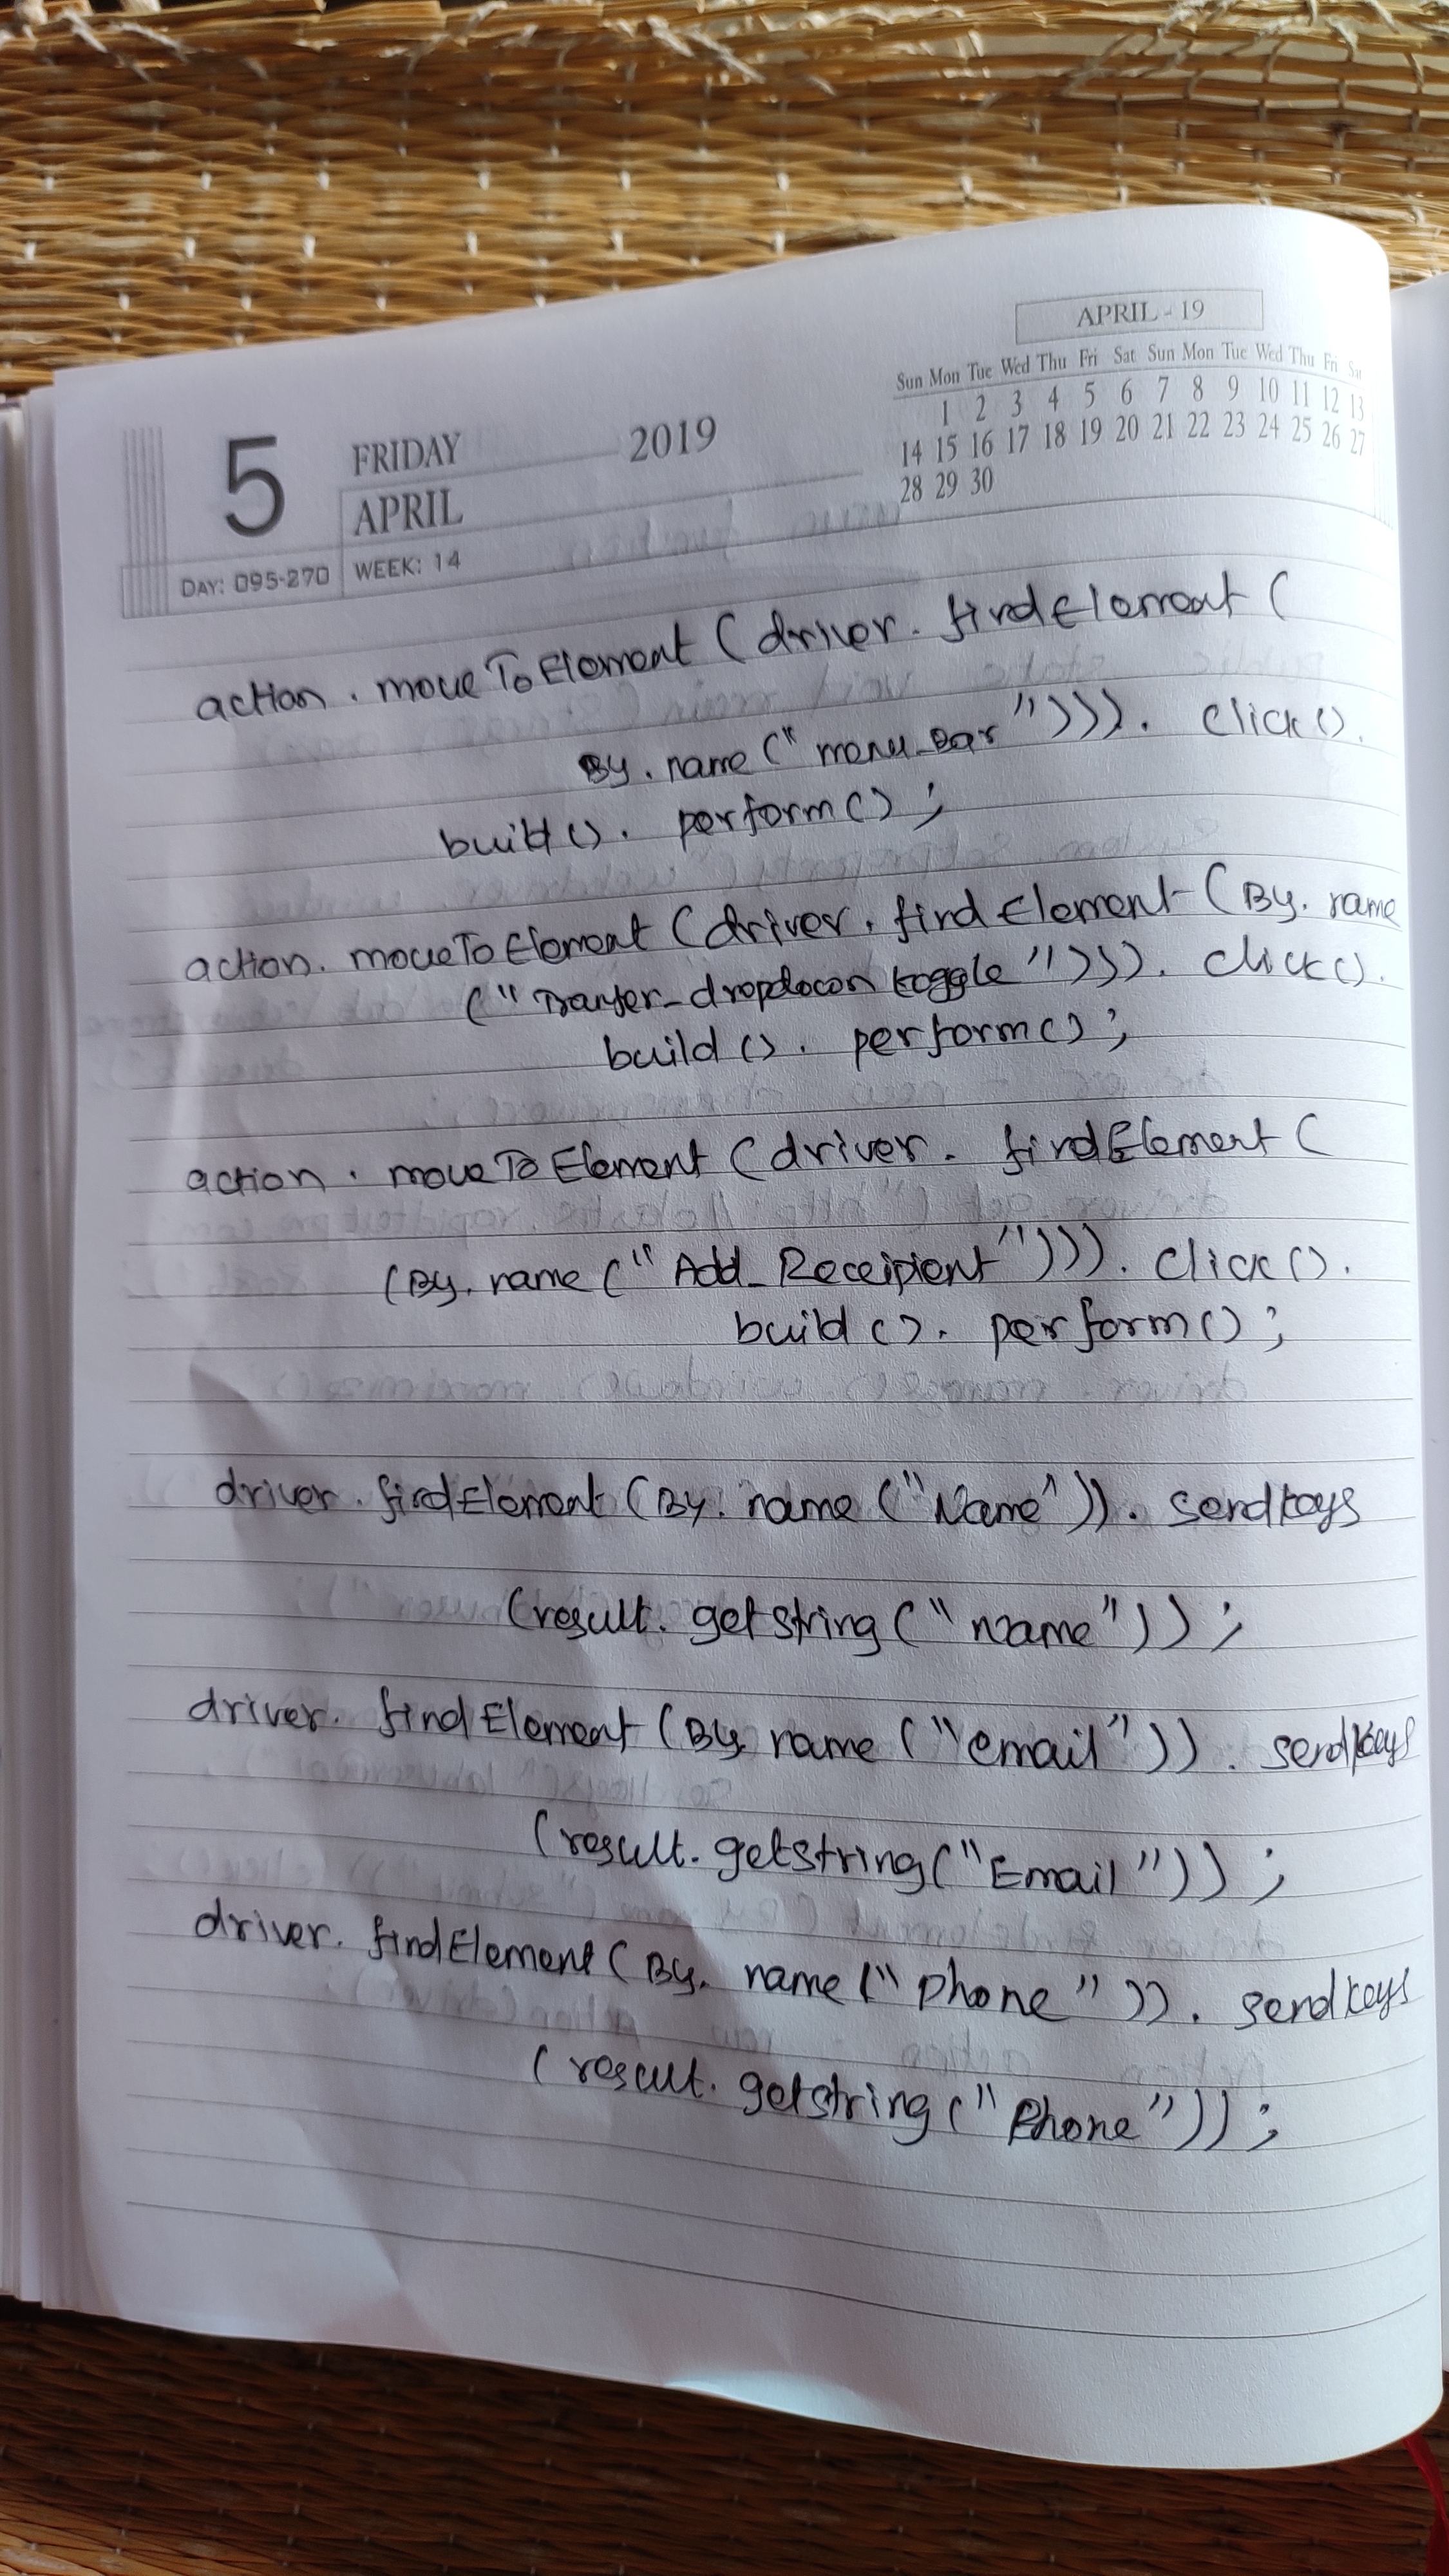 APRIL - 19
Sun Mon Tue Wed Thu Fri Sat Sun Mon Tue Wed Thu Fri Sat
1 2 3 4 5 6 7 8 9 10 11 12 13
14 15 16 17 18 19 20 21 22 23 24 25 26 27
28 29 30
5 FRIDAY 2019
APRIL
DAY: 095-270 WEEK: 14
action . moveToElement ( driver . findElement (
By . name (" menu_Bar "))) . click() .
build () . perform () ;
action . moveToElement ( driver . findElement ( By . name
(" Tranfer_dropdown toggle "))) . click () .
build () . perform () ;
action . moveToElement ( driver . findElement (
(By . name (" Add_Receipient "))) . click () .
build () . perform () ;
driver . findElement ( By . name ("Name")) . sendkeys
(result . getstring (" Name")) ;
driver . findElement (By name ("email")) . sendkeys
(result . getstring ("Email")) ;
driver . findElement ( By . name (" phone ")) . sendkeys
( result . getstring (" Phone")) ;